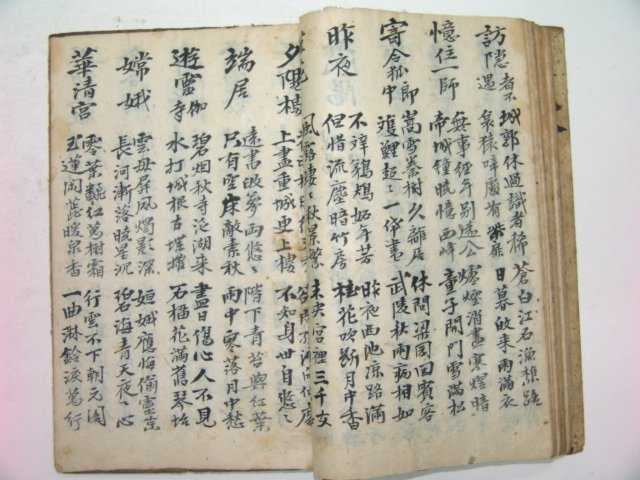 訪隱者不遇
城郭休過識者稀 蒼白江石漁樵路
哀猿啼處有紫扉 日暮皈來雨滿衣
憶住一師
無事經年別遠公 爐煙消盡寒燈暗
帝城鐘曉憶西峰 童子開門雪滿松
寄令狐郎中
嵩雲秦樹久離居 休問梁園旧賓客
雙鯉迢〻一紙書 武陵秋雨病相如
昨夜
不辭鶗鴂妬年芳 昨夜西池凉路滿
但惜流塵暗竹房 桂花吹斷月中香
風露凄〻秋景繁 未央宮裡三千女
夕陽樓
上盡重城更上樓 不知身世自悠〻
端居
遠書皈夢両悠〻 階下青苔與紅葉
只有空床敵素秋 雨中寥落月中愁
遊靈伽寺
碧烟秋寺泛湖来 盡日傷心人不見
水打城根古堞摧 石榴花滿舊琴坮
嫦娥
雲母屏風燭影深 姮娥應悔偷靈藥
長河漸落曉星沉 碧海青天夜〻心
華清宮
零葉飜紅萬樹霜 行雲不下朝元閣
玉蓮開蘂暖泉香 一曲淋鈴淚萬行